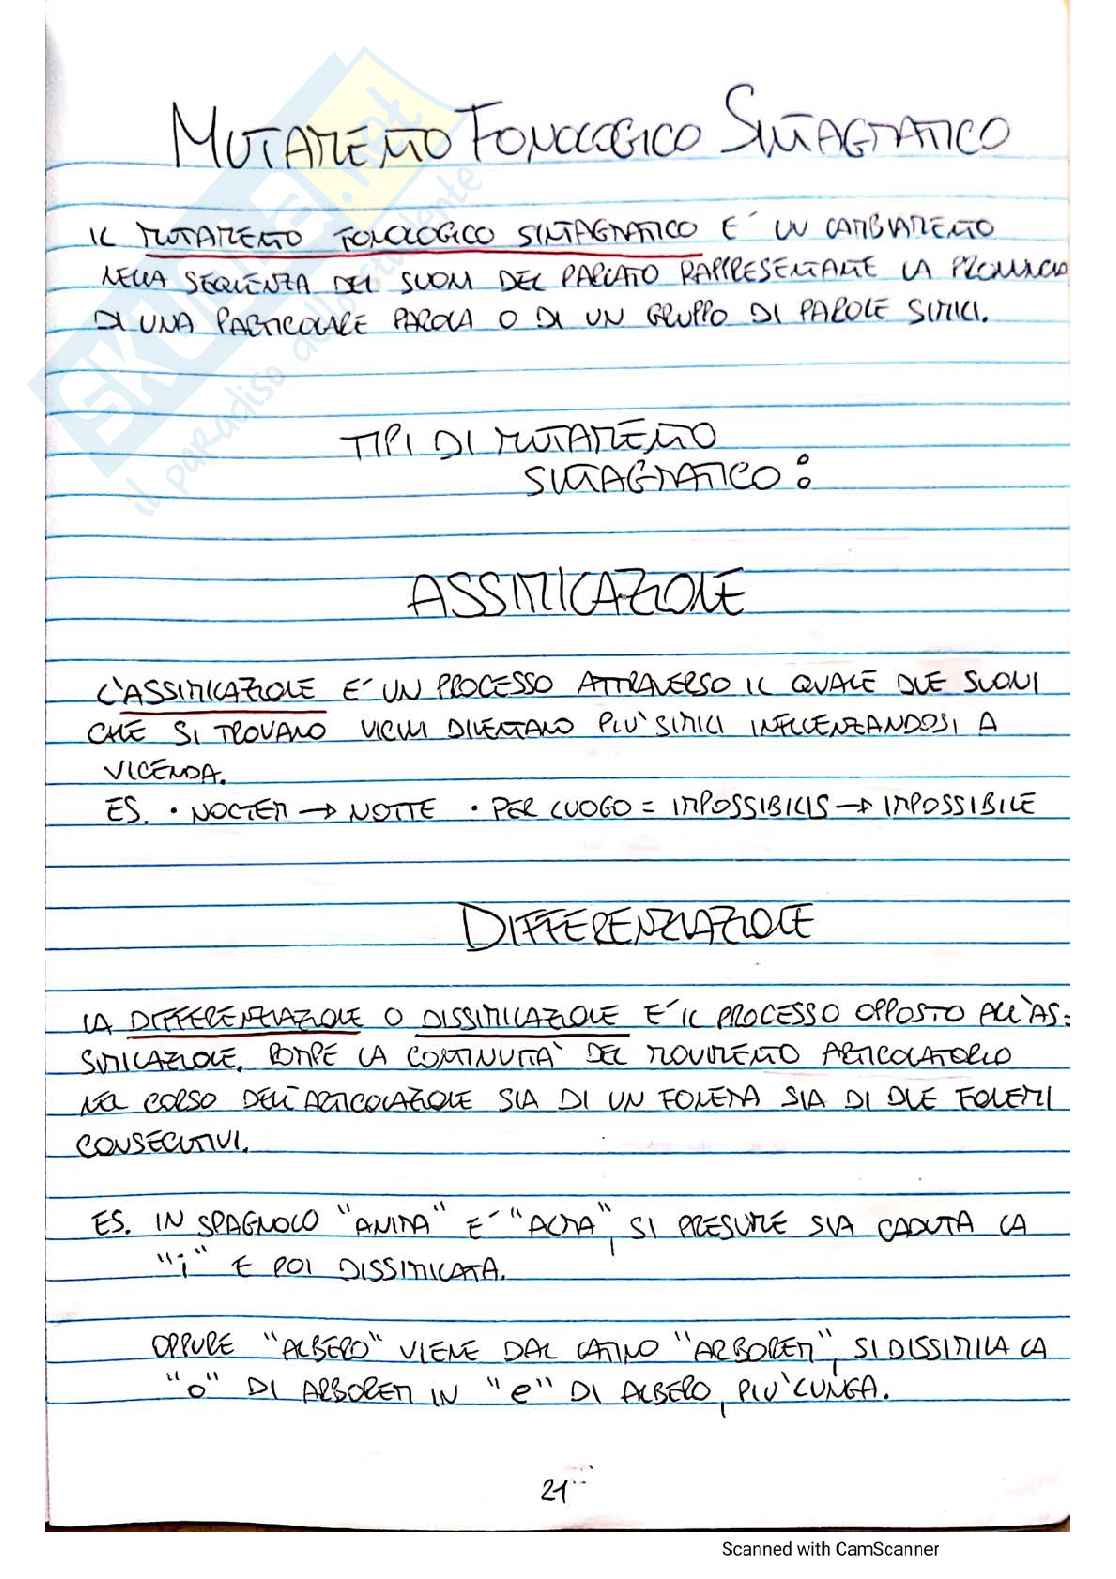 MUTAMENTO FONOLOGICO SINTAGMATICO
IL MUTAMENTO FONOLOGICO SINTAGMATICO E' UN CAMBIAMENTO
NELLA SEQUENZA DEI SUONI DEL PARLATO RAPPRESENTANTE LA PRONUNCIA
DI UNA PARTICOLARE PAROLA O DI UN GRUPPO DI PAROLE SIMILI.
TIPI DI MUTAMENTO
SINTAGMATICO:
ASSIMILAZIONE
L'ASSIMILAZIONE E' UN PROCESSO ATTRAVERSO IL QUALE DUE SUONI
CHE SI TROVANO VICINI DIVENTANO PIU' SIMILI INFLUENZANDOSI A
VICENDA.
ES. • NOCTEM → NOTTE • PER LUOGO = IMPOSSIBILIS → IMPOSSIBILE
DIFFERENZIAZIONE
LA DIFFERENZIAZIONE O DISSIMILAZIONE E' IL PROCESSO OPPOSTO ALL'AS-
SIMILAZIONE. ROMPE LA CONTINUITA' DEL MOVIMENTO ARTICOLATORIO
NEL CORSO DELL'ARTICOLAZIONE SIA DI UN FONEMA SIA DI DUE FONEMI
CONSECUTIVI.
ES. IN SPAGNOLO "ANIMA" E' "ALMA", SI PRESUME SIA CADUTA LA
"i" E POI DISSIMILATA.
OPPURE "ALBERO" VIENE DAL LATINO "ARBOREM", SI DISSIMILA LA
"o" DI ARBOREM IN "e" DI ALBERO, PIU' LUNGA.
21
SKUOLA.net
il paradiso dello studente
Scanned with CamScanner